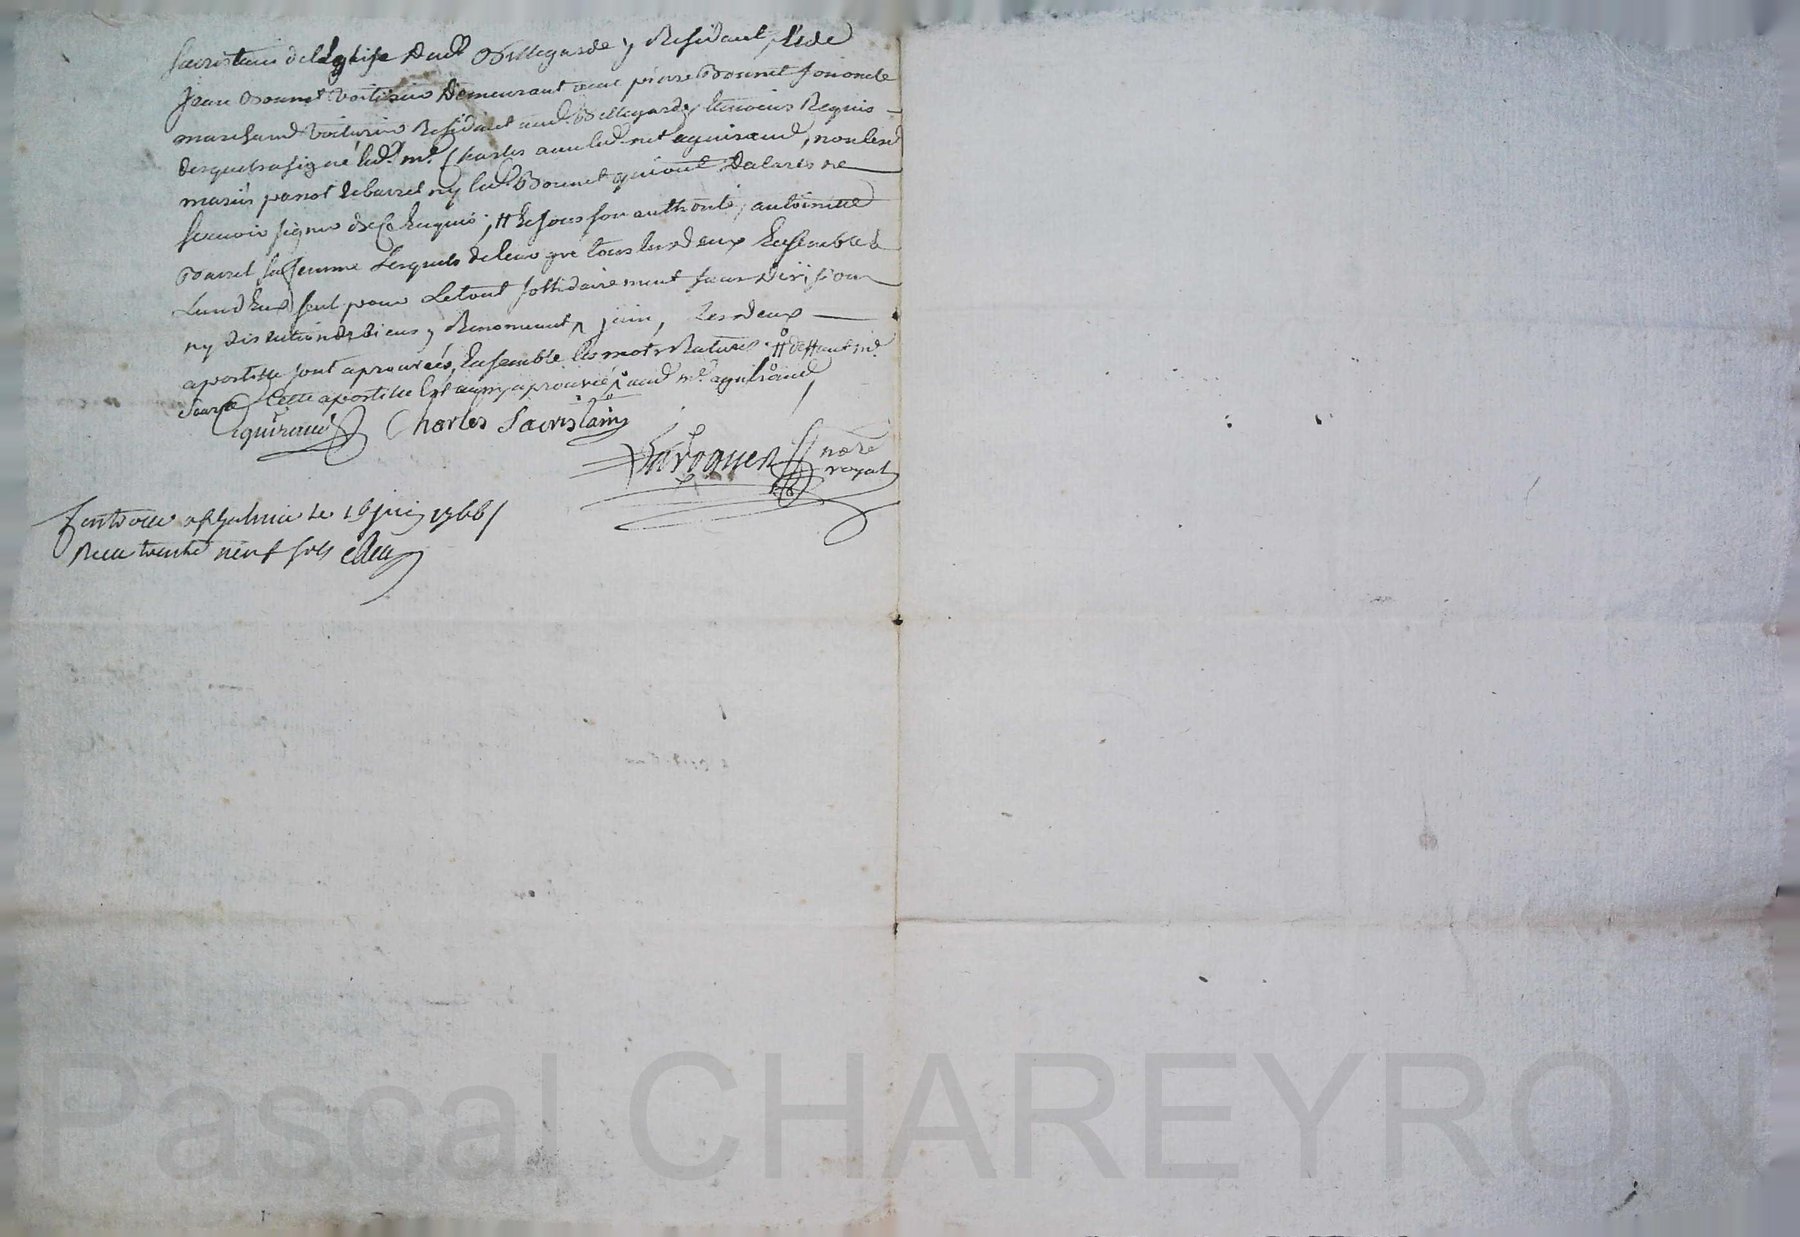 sacristain de l'Eglise dud. Bellegarde y Residant, et de
Jean Bonnet voiturin demeurant avec pierre Bonnet son oncle
marchand voiturin Residant aud. Bellegarde temoins Requis
desquels a signé led. m.e Charles avec led. m.e aguiraud, non lesd.
mariés panot et barret ny led. Bonnet qui ont declaré ne
scavoir signer de ce Enquis; # de sous son authorité, antoinette
Barret sa femme Lesquels de leur gré tous les deux Ensemble &
Lun d'Eux seul pour Le tout sollidairement sans division
ny discution de biens, Renonceant, juin, Les deux
apostille sont aprouvées, Ensemble les mots # deffaut m.e
Cette apostille Est aussy aprouvée aud. m.e aguiraud
aguiraud Charles Sacristain
no.re
royal
le 16 juin 1766
Receu trente neuf sols
Pascal CHAREYRON